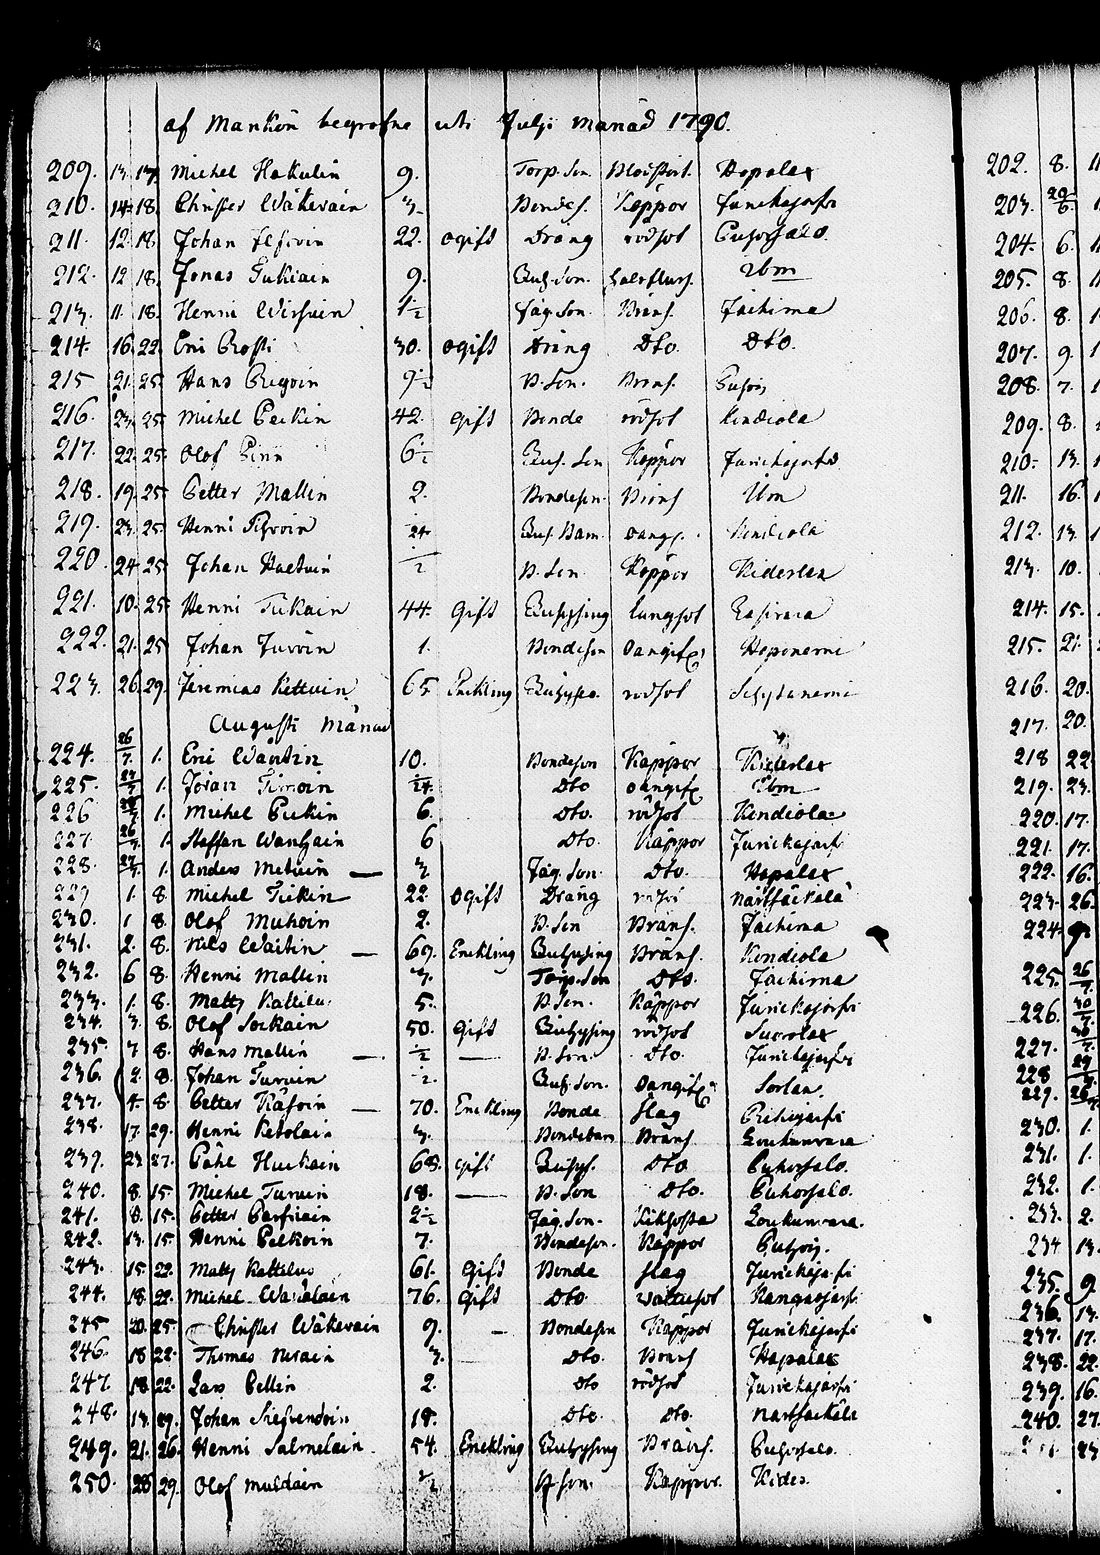 af Mankön begrafne uti Julji månad 1790.
209. 13. 17. Michel Hakulin 9. Torp. Son Hopalax
210. 14. 18. Christer Wäkevain 3. Bondes. Koppor Junickajerfvi
211. 12. 18. Johan 22. ogift Dräng rödsot Puhossalo.
212. 12. 18. Jonas Tukiain 9. Ibm
213. 11. 18. Henni 1½ Jäg. Son. Bräns. Jächima
214. 16. 22. Eric Prosti 30. ogift Dräng Dto. Dto.
215 21. 25. Hans 9½ B. Son. Bräns.
216. 23. 25. Michel Peckin 42. gift Bonde rödsot Kendiola
217. 22. 25. Olof Pinn 6½ Koppor Junickajerfvi
218. 19. 25. Petter Mallin 2. Bondeson. Bräns Ibm
219. 23. 25. Henni Kendiola
220. 24 25. Johan ½ B. Son Koppor Kiderlax
221. 10. 25. Henni Tukain 44. Gift lungsot
222. 21. 25 Johan Juvoin 1. Bondeson oangif. Heponemi
223. 26. 29. Jeremias Kettuin 65 Enckling rödsot
Augusti Månad
224. 26/7. 1. Eric Wäntin 10. Bondeson Kappor Kiderlax
225. 27/7 1. Jöran Timoin 1/24. Dto oangif. Ibm
226 1. Michel Peckin 6. Dto. rödsot Kendiola
227. 26/7. 1. Staffan Wanhain 6 Dto. Kappor Junickajerfvi
228. 27/7 1. Anders Metuin — 3. Jäg. Son. Dto. Hopalax
229 1. 8. Michel Tickin 22. ogift Dräng rödsot Närssäkälä
230. 1 8. Olof Muhoin 2. B. Son Bräns. Jächima
231. 2. 8. Nils Waitin — 69. Enckling Bräns. Kendiola
232. 6 8. Henni Mallin 3. Torp. Son Dto. Jächima
233. 1. 8. Matts Kattilu 5. B. Son. Kappor Junickajerfvi
234. 3. 8. Olof Sorkain 50. gift rödsot Suorlax
235. 7 8. Hans Mallin — ½ — B. Son. Dto. Junickajerfvi
236. 2. 8. Johan Turuin ½. oangif. Sorlax.
237. 4. 8. Petter — 70. Enckling Bonde slag
238. 17. 29. Henni Ketolain 3. Bondebarn Bräns Loukunvara
239. 23 27. Påhl Huckain 68. gift Dto Puhossalo.
240. 8. 15. Michel Turuin 18. — B. Son Dto. Puhossalo.
241. 8. 15. Petter 2½ Jäg. Son. Kikhosta Loukunvara.
242. 13. 15. Henni Pelkoin 7. Bondeson. Kappor
243. 15. 22. Matts Kattilus 61. Gift Bonde slag Junickajerfvi
244. 18. 22. Michel 76. Gift Dto. Wattusot Kangasjerfvi
245 20. 25. Christer Wäkevain 9. — Bondeson Kappor Junickajerfvi
246. 18 22. Thomas 3. Dto. Bräns Hopalax
247. 18. 22. Lars Pellin 2. Dto rödsot Junickajerfvi
248. 13. 29. Johan 18. Dto. Dto. Närssäkälä
249. 21. 26. Henni Salmelain. 54. Enckling Bräns. Puhossalo.
250. 28 29. Olof Muldain ½ B. son. Kappor. Kides
202. 8.
203. 20/6.
204. 6.
205. 8.
206. 8.
207. 9.
208. 7.
209. 8.
210. 13.
211. 16.
212. 13.
213. 10.
214. 15.
215. 21.
216. 20.
217. 20.
218 22
219. 23.
220. 17.
221. 17.
222. 16.
223. 26.
224.
225. 26/7.
226. 30/7.
227. 30/7.
228 29/7.
229. 26/7.
230. 1.
231. 1.
232. 1.
233. 2.
234 13.
235. 9.
236. 13.
237. 17.
238. 22.
239. 16.
240. 27.